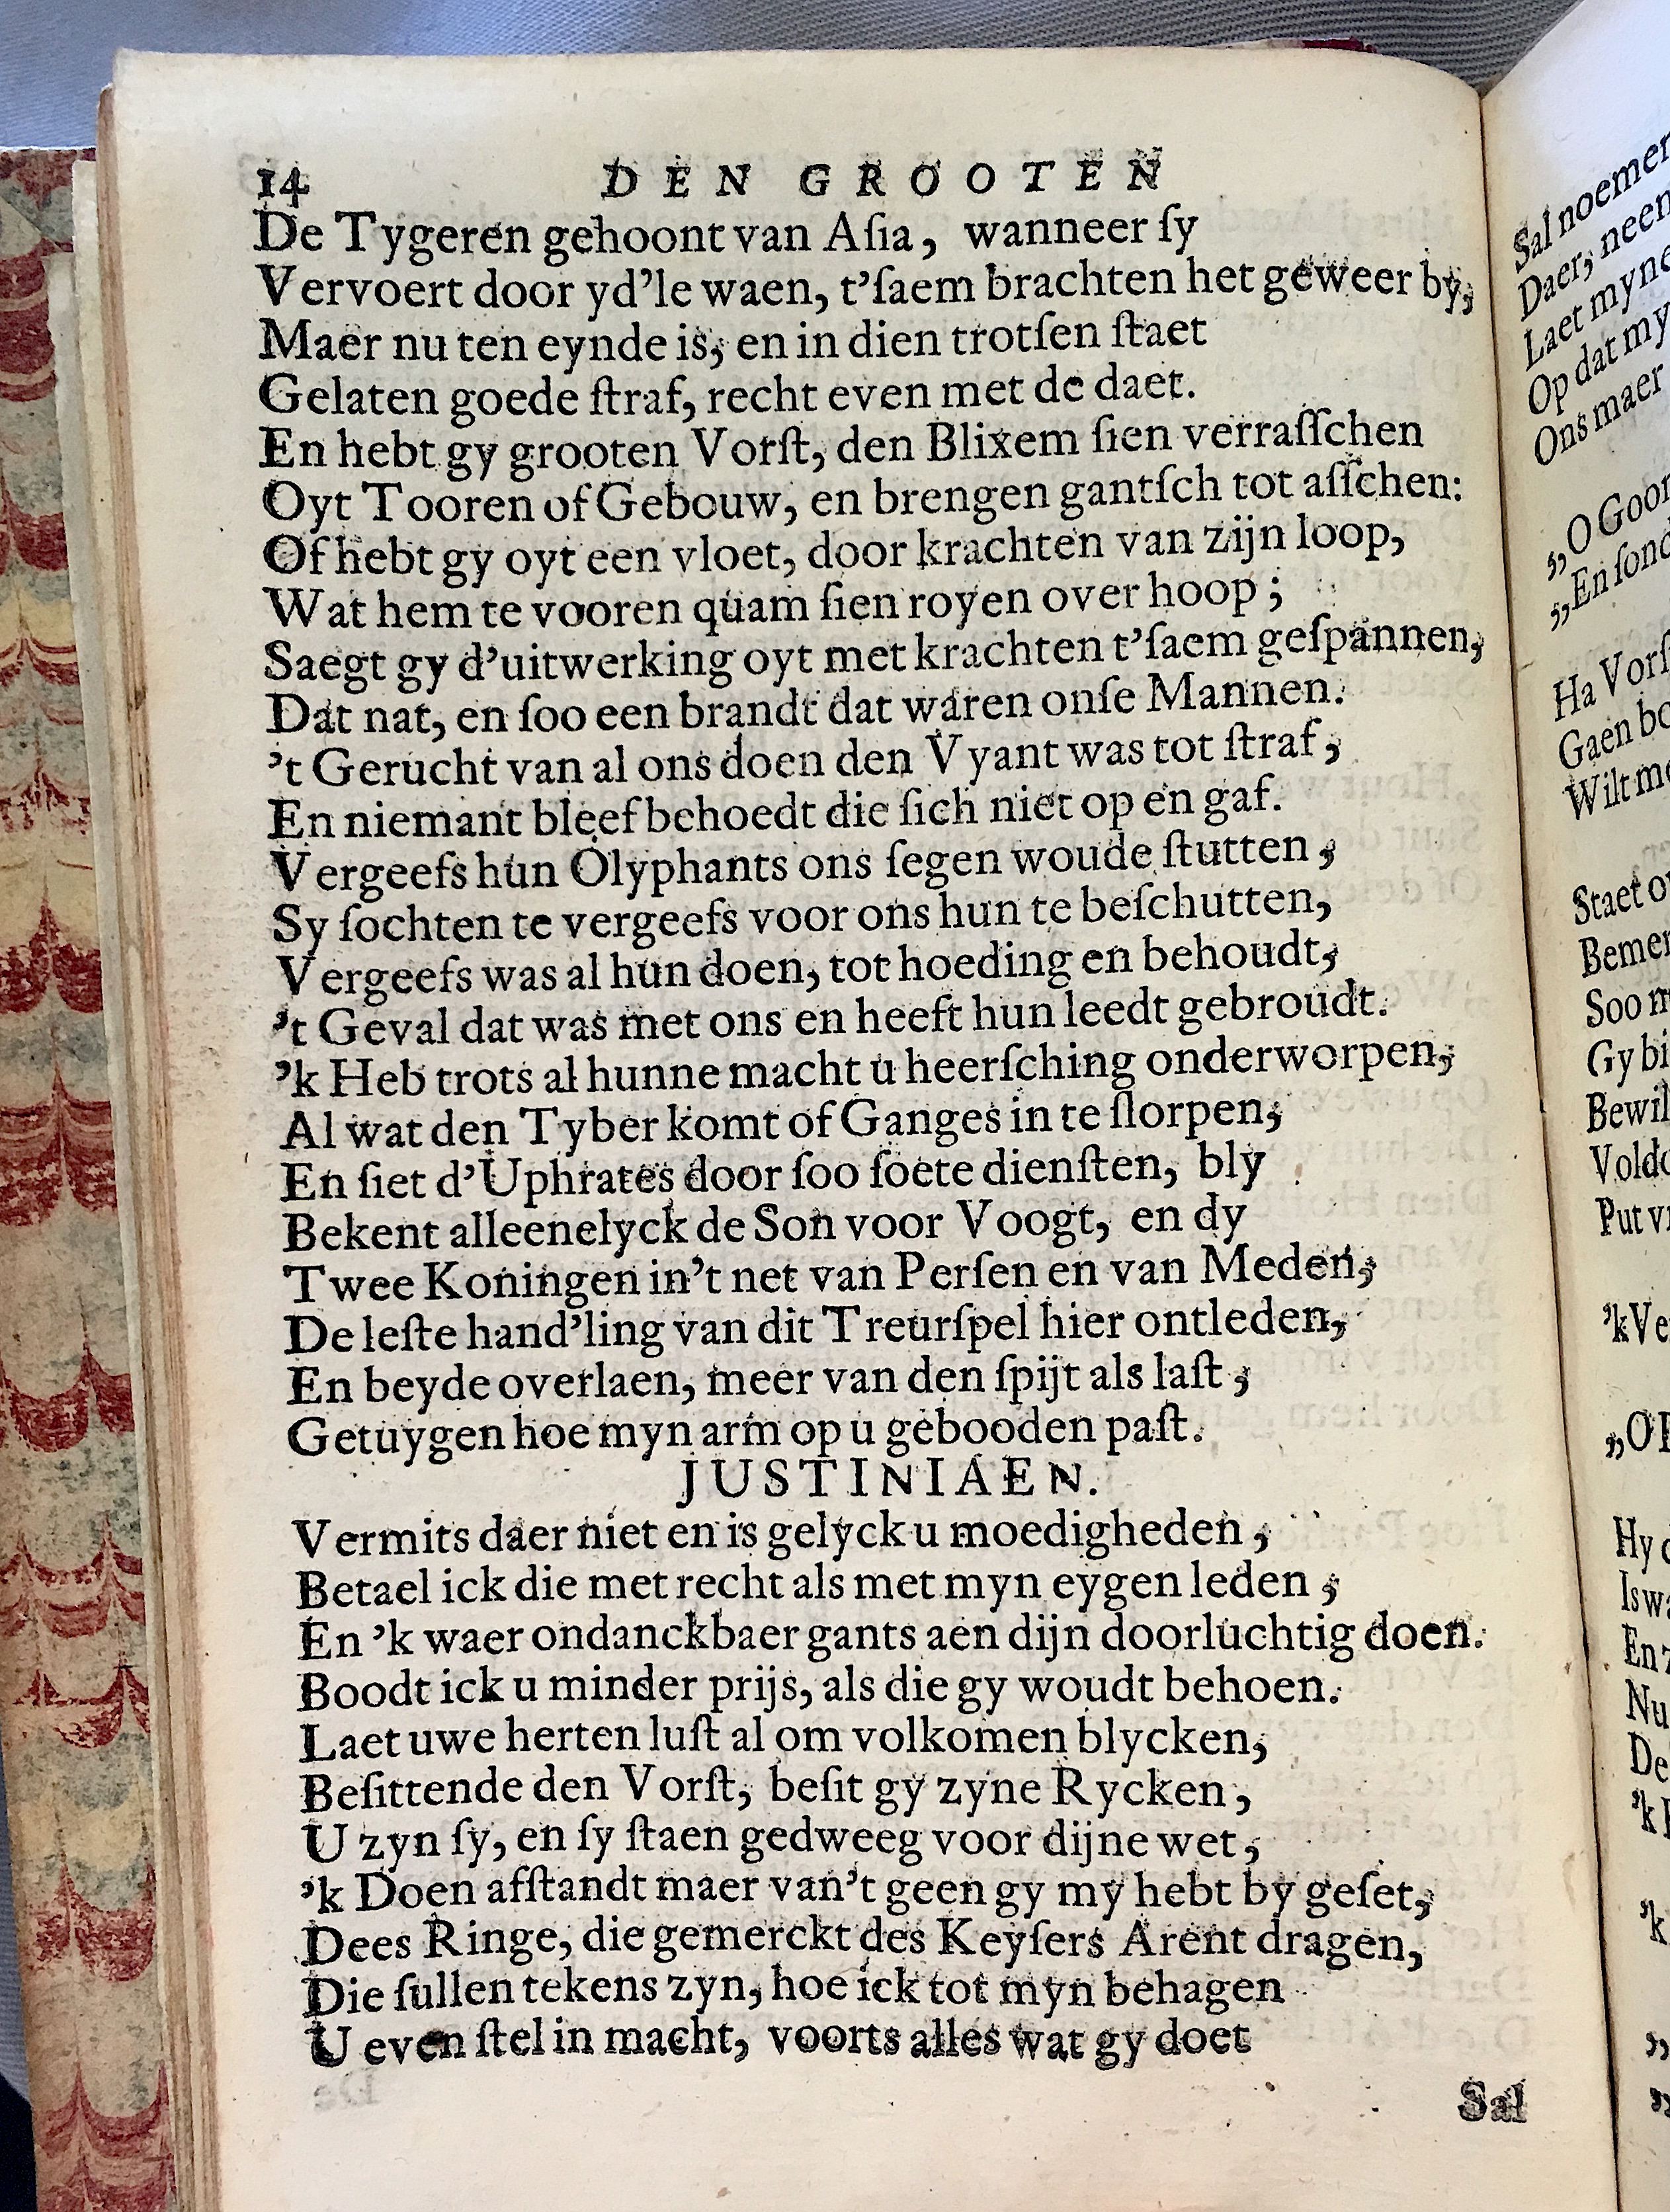 14 DEN GROOTEN
De Tygeren gehoont van Aſia, wanneer ſy
Vervoert door yd'le waen, t'ſaem brachten het geweer by,
Maer nu ten eynde is, en in dien trotſen ſtaet
Gelaten goede ſtraf, recht even met de daet.
En hebt gy grooten Vorſt, den Blixem ſien verraſſchen
Oyt Tooren of Gebouw, en brengen gantſch tot aſſchen:
Of hebt gy oyt een vloet, door krachten van zijn loop,
Wat hem te vooren quam ſien royen over hoop;
Saegt gy d'uitwerking oyt met krachten t'ſaem geſpannen,
Dat nat, en ſoo een brandt dat waren onſe Mannen.
't Gerucht van al ons doen den Vyant was tot ſtraf,
En niemant bleef behoedt die ſich niet op en gaf.
Vergeefs hun Olyphants ons ſegen woude ſtutten,
Sy ſochten te vergeefs voor ons hun te beſchutten,
Vergeefs was al hun doen, tot hoeding en behoudt,
't Geval dat was met ons en heeft hun leedt gebroudt.
'k Heb trots al hunne macht u heerſching onderworpen,
Al wat den Tyber komt of Ganges in te ſlorpen,
En ſiet d'Uphrates door ſoo ſoete dienſten, bly
Bekent alleenelyck de Son voor Voogt, en dy
Twee Koningen in't net van Perſen en van Meden,
De leſte hand'ling van dit Treurſpel hier ontleden,
En beyde overlaen, meer van den ſpijt als laſt,
Getuygen hoe myn arm op u gebooden paſt.
JUSTINIAEN.
Vermits daer niet en is gelyck u moedigheden,
Betael ick die met recht als met myn eygen leden,
En 'k waer ondanckbaer gants aen dijn doorluchtig doen.
Boodt ick u minder prijs, als die gy woudt behoen.
Laet uwe herten luſt al om volkomen blycken,
Beſittende den Vorſt, beſit gy zyne Rycken,
U zyn ſy, en ſy ſtaen gedweeg voor dijne wet,
'k Doen afſtandt maer van't geen gy my hebt by geſet,
Dees Ringe, die gemerckt des Keyſers Arent dragen,
Die ſullen tekens zyn, hoe ick tot myn behagen
U even ſtel in macht, voorts alles wat gy doet
Sal
Sal noemen
Daer, neen
Laet myne
Op dat my
Ons maer
„O Goor
„En ſond
Ha Vorſ
Gaen bo
Wilt me
Staet o
Bemer
Soo m
Gy bi
Bewil
Voldo
Put v
'k Ve
„O
Hy
Is wa
En
Nu
De
'k
'k
„
„